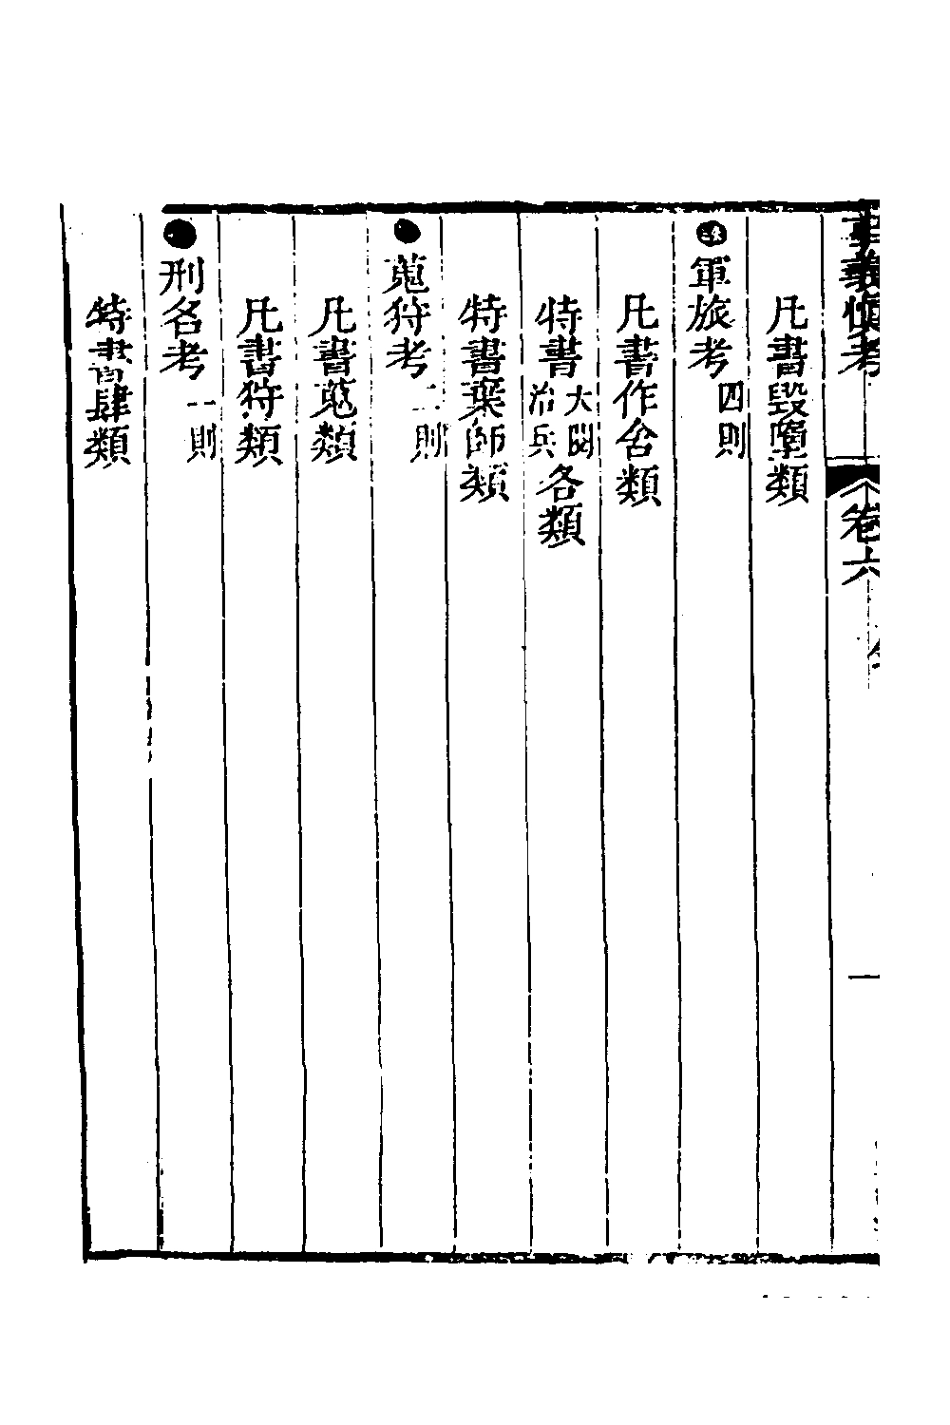 凡書毀墮類
●軍旅考四則
凡書作舍類
特書大閱治兵各類
特書棄師類
●蒐狩考二則
凡書蒐類
凡書狩類
●刑名考一則
特書肆類
卷六